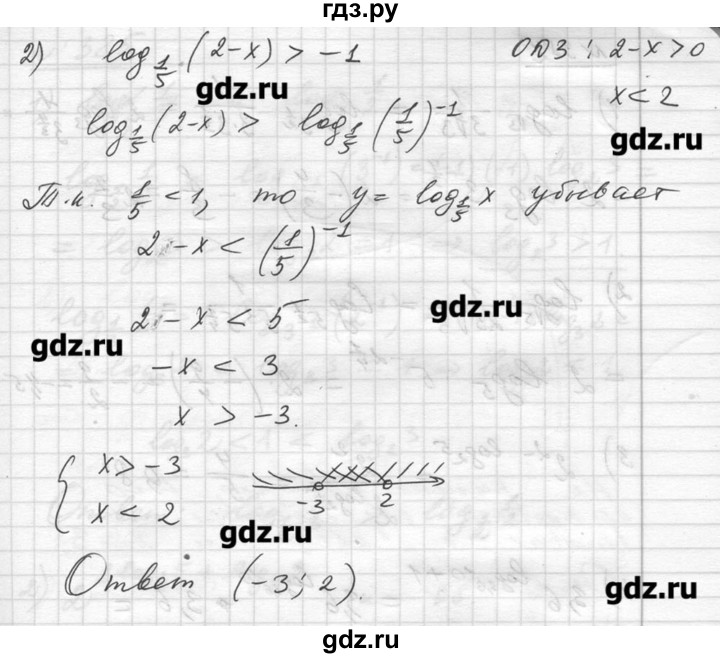 гдз.ру
2) log_{1/5} (2-x) > -1 ОДЗ: 2-x>0
gdz.ru
x<2
log_{1/5} (2-x) > log_{1/5} (1/5)^{-1}
gdz.ru
Т.к. 1/5 <1, то y= log_{1/5} x убывает
2-x < (1/5)^{-1}
gdz.ru
2-x < 5
gdz.ru
-x < 3
x > -3.
{ x>-3
x< 2
-3 2
gdz.ru
Ответ (-3; 2).
gdz.ru
gdz.ru